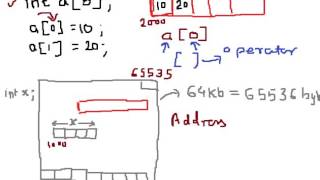 ✓ int a[0];
a[0] = 10;
a[1] = 20;
10 20
2000
a[0]
[ ] → operator
65535
int x;
x
1000
→ 64kb = 65536 by
Address